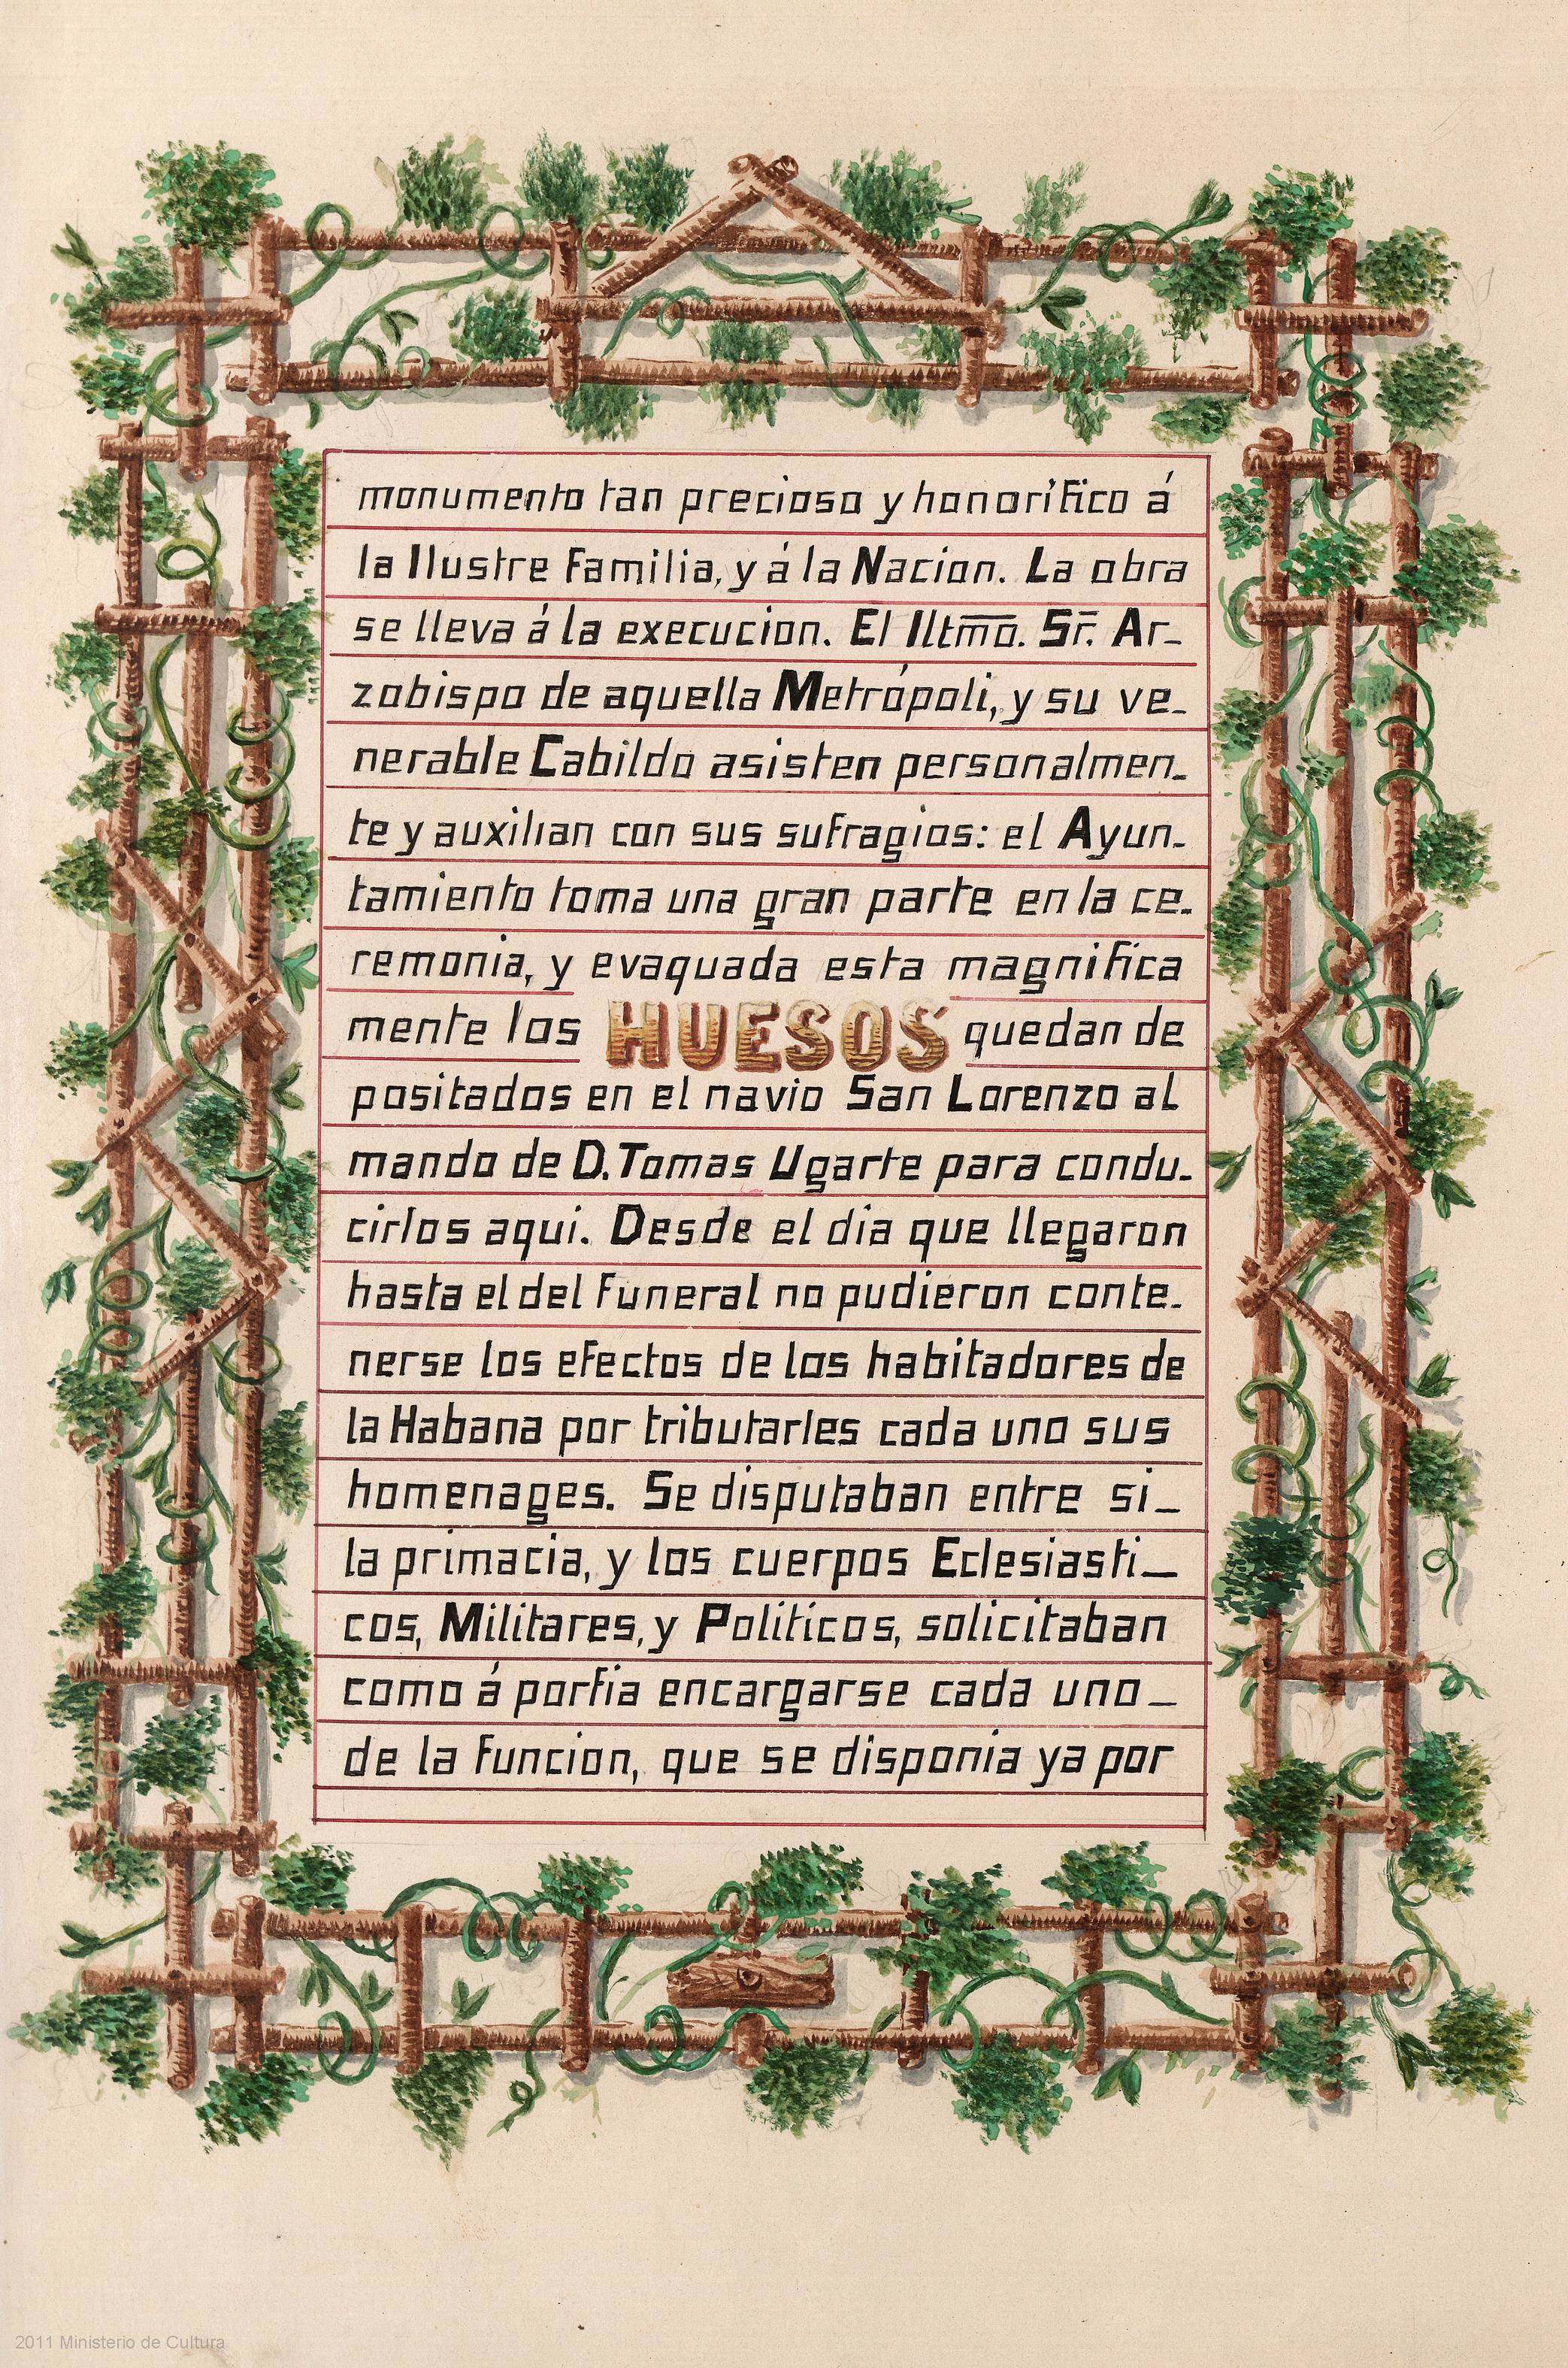 monumento tan precioso y honorífico á
la Ilustre Familia, y á la Nacion. La obra
se lleva á la execucion. El Iltmo. Sr. Ar_
zobispo de aquella Metrópoli, y su ve_
nerable Cabildo asisten personalmen_
te y auxilian con sus sufragios: el Ayun_
tamiento toma una gran parte en la ce_
remonia, y evaquada esta magnifica
mente los HUESOS quedan de
positados en el navio San Lorenzo al
mando de D. Tomas Ugarte para condu_
cirlos aqui. Desde el dia que llegaron
hasta el del funeral no pudieron conte_
nerse los efectos de los habitadores de
la Habana por tributarles cada uno sus
homenages. Se disputaban entre si_
la primacia, y los cuerpos Eclesiasti_
cos, Militares, y Politicos, solicitaban
como á porfia encargarse cada uno_
de la funcion, que se disponia ya por
2011 Ministerio de Cultura